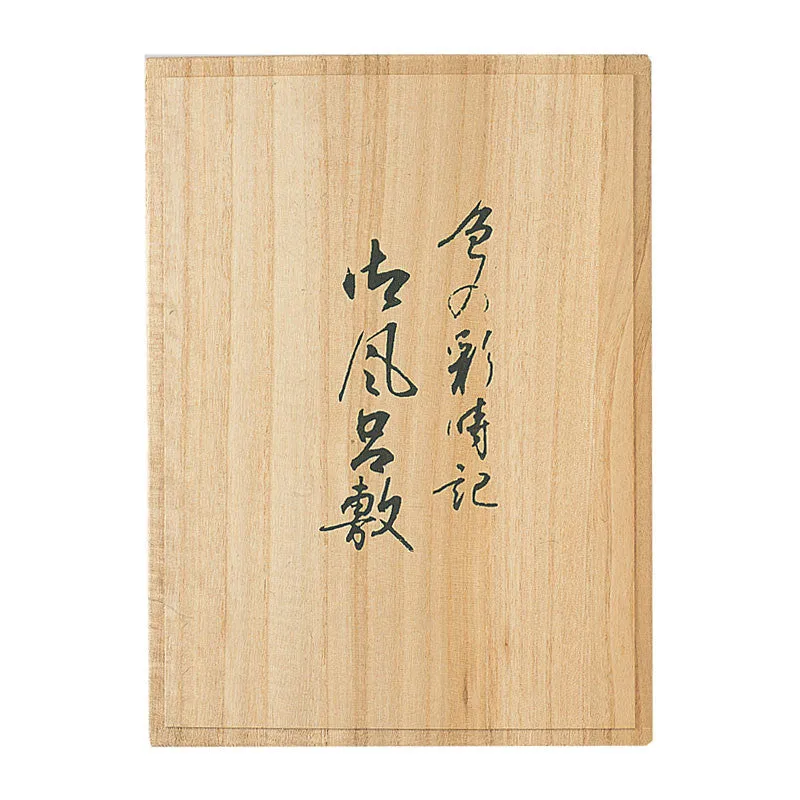 色の彩時記
御風呂敷